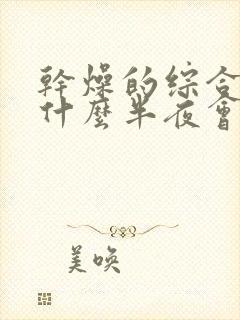 幹燥的综合
什麼半夜會
美唤